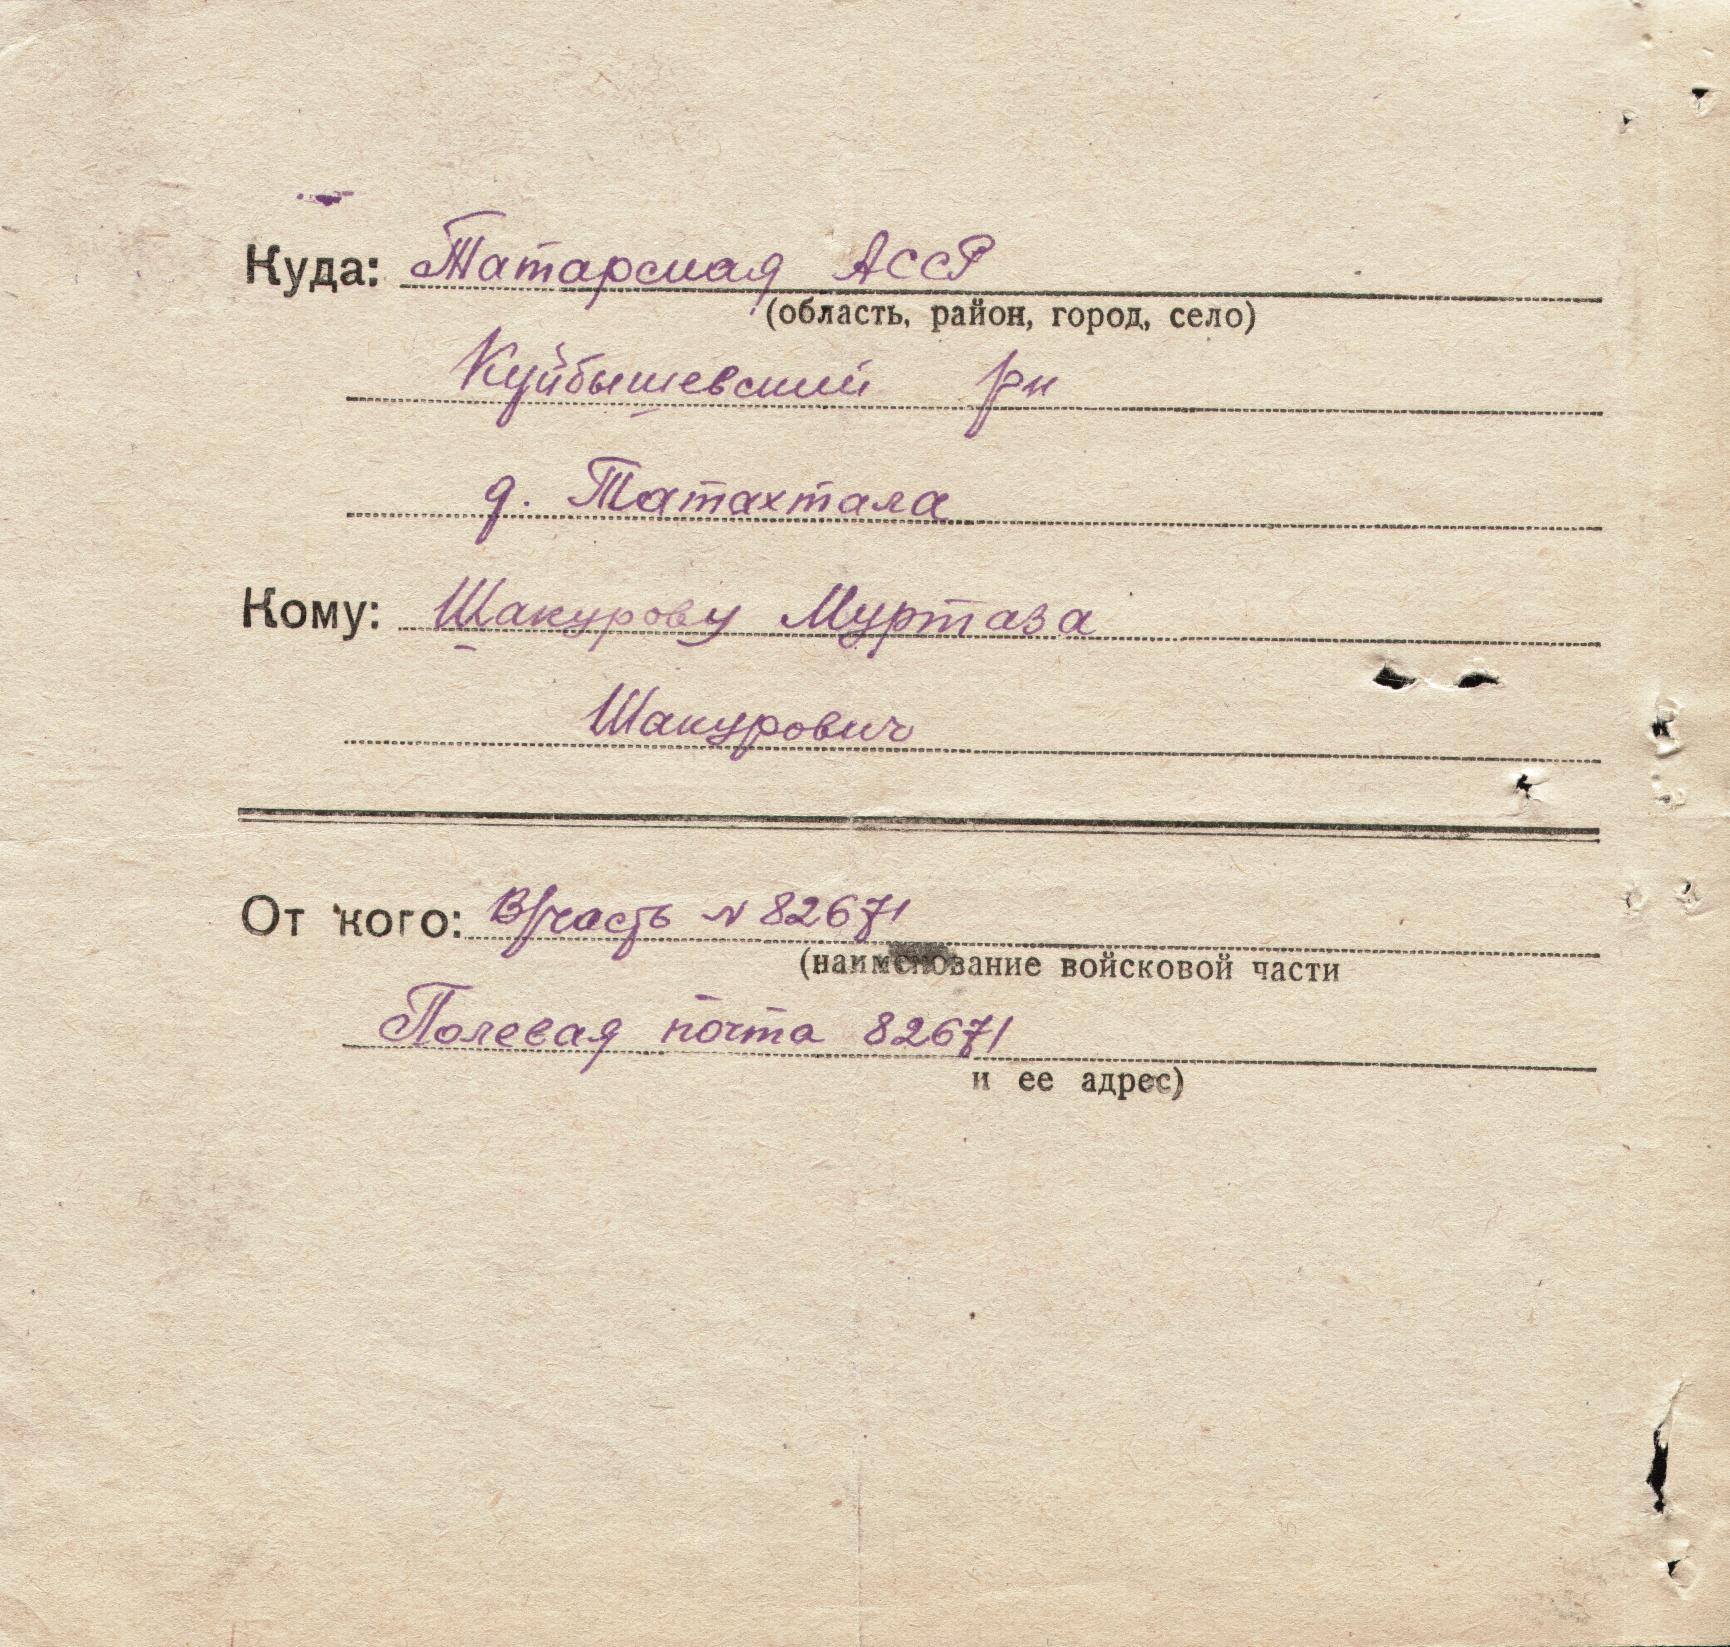 Куда: Татарская АССР
(область, район, город, село)
Куйбышевский рн
д. Татахтала
Кому: Шакурову Муртаза
Шакурович
От кого: В/часть N 82671
(наименование войсковой части
Полевая почта 82671
и ее адрес)